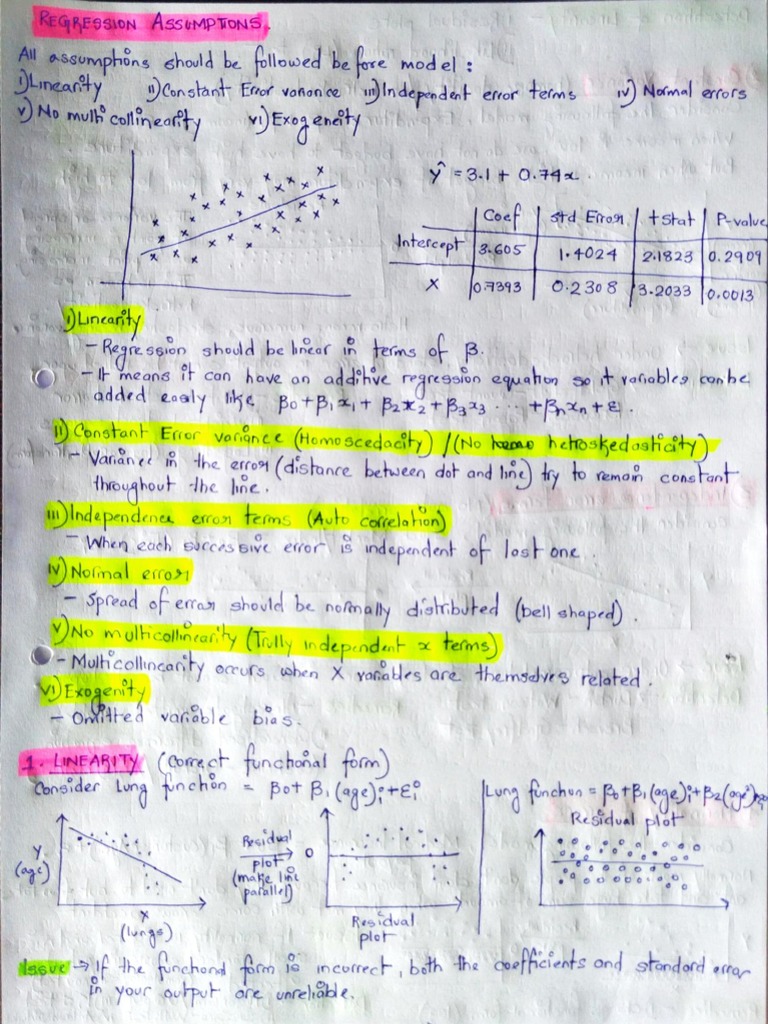 REGRESSION ASSUMPTIONS.
All assumptions should be followed before model :
i) Linearity ii) Constant Error variance iii) Independent error terms iv) Normal errors
v) No multi collinearity vi) Exogeneity
ŷ = 3.1 + 0.74x.
Coef std Error t stat P-value
Intercept 3.605 1.4024 2.1823 0.2909
X 0.7393 0.2308 3.2033 0.0013
i) Linearity
- Regression should be linear in terms of β.
- It means it can have an additive regression equation so it variables can be
added easily like β0 + β1x1 + β2x2 + β3x3 ... + βnxn + ε.
ii) Constant Error variance (Homoscedacity) / (No hetroskedasticity)
- Variance in the error (distance between dot and line) try to remain constant
throughout the line.
iii) Independence error terms (Auto correlation)
- When each successive error is independent of last one.
iv) Normal error
- Spread of error should be normally distributed (bell shaped).
v) No multicollinearity (Trully independent x terms)
- Multicollinearity occurs when X variables are themselves related.
vi) Exogenity
- Omitted variable bias.
1. LINEARITY (Correct functional form)
Consider Lung function = β0 + β1 (age)i + εi
Lung function = β0 + β1 (age)i + β2 (age²)
Residual plot
Y
(age)
X
(lungs)
Residual
plot
(make line
parallel)
0
Residual
plot
Issue → If the functional form is incorrect, both the coefficients and standard error
in your output are unreliable.